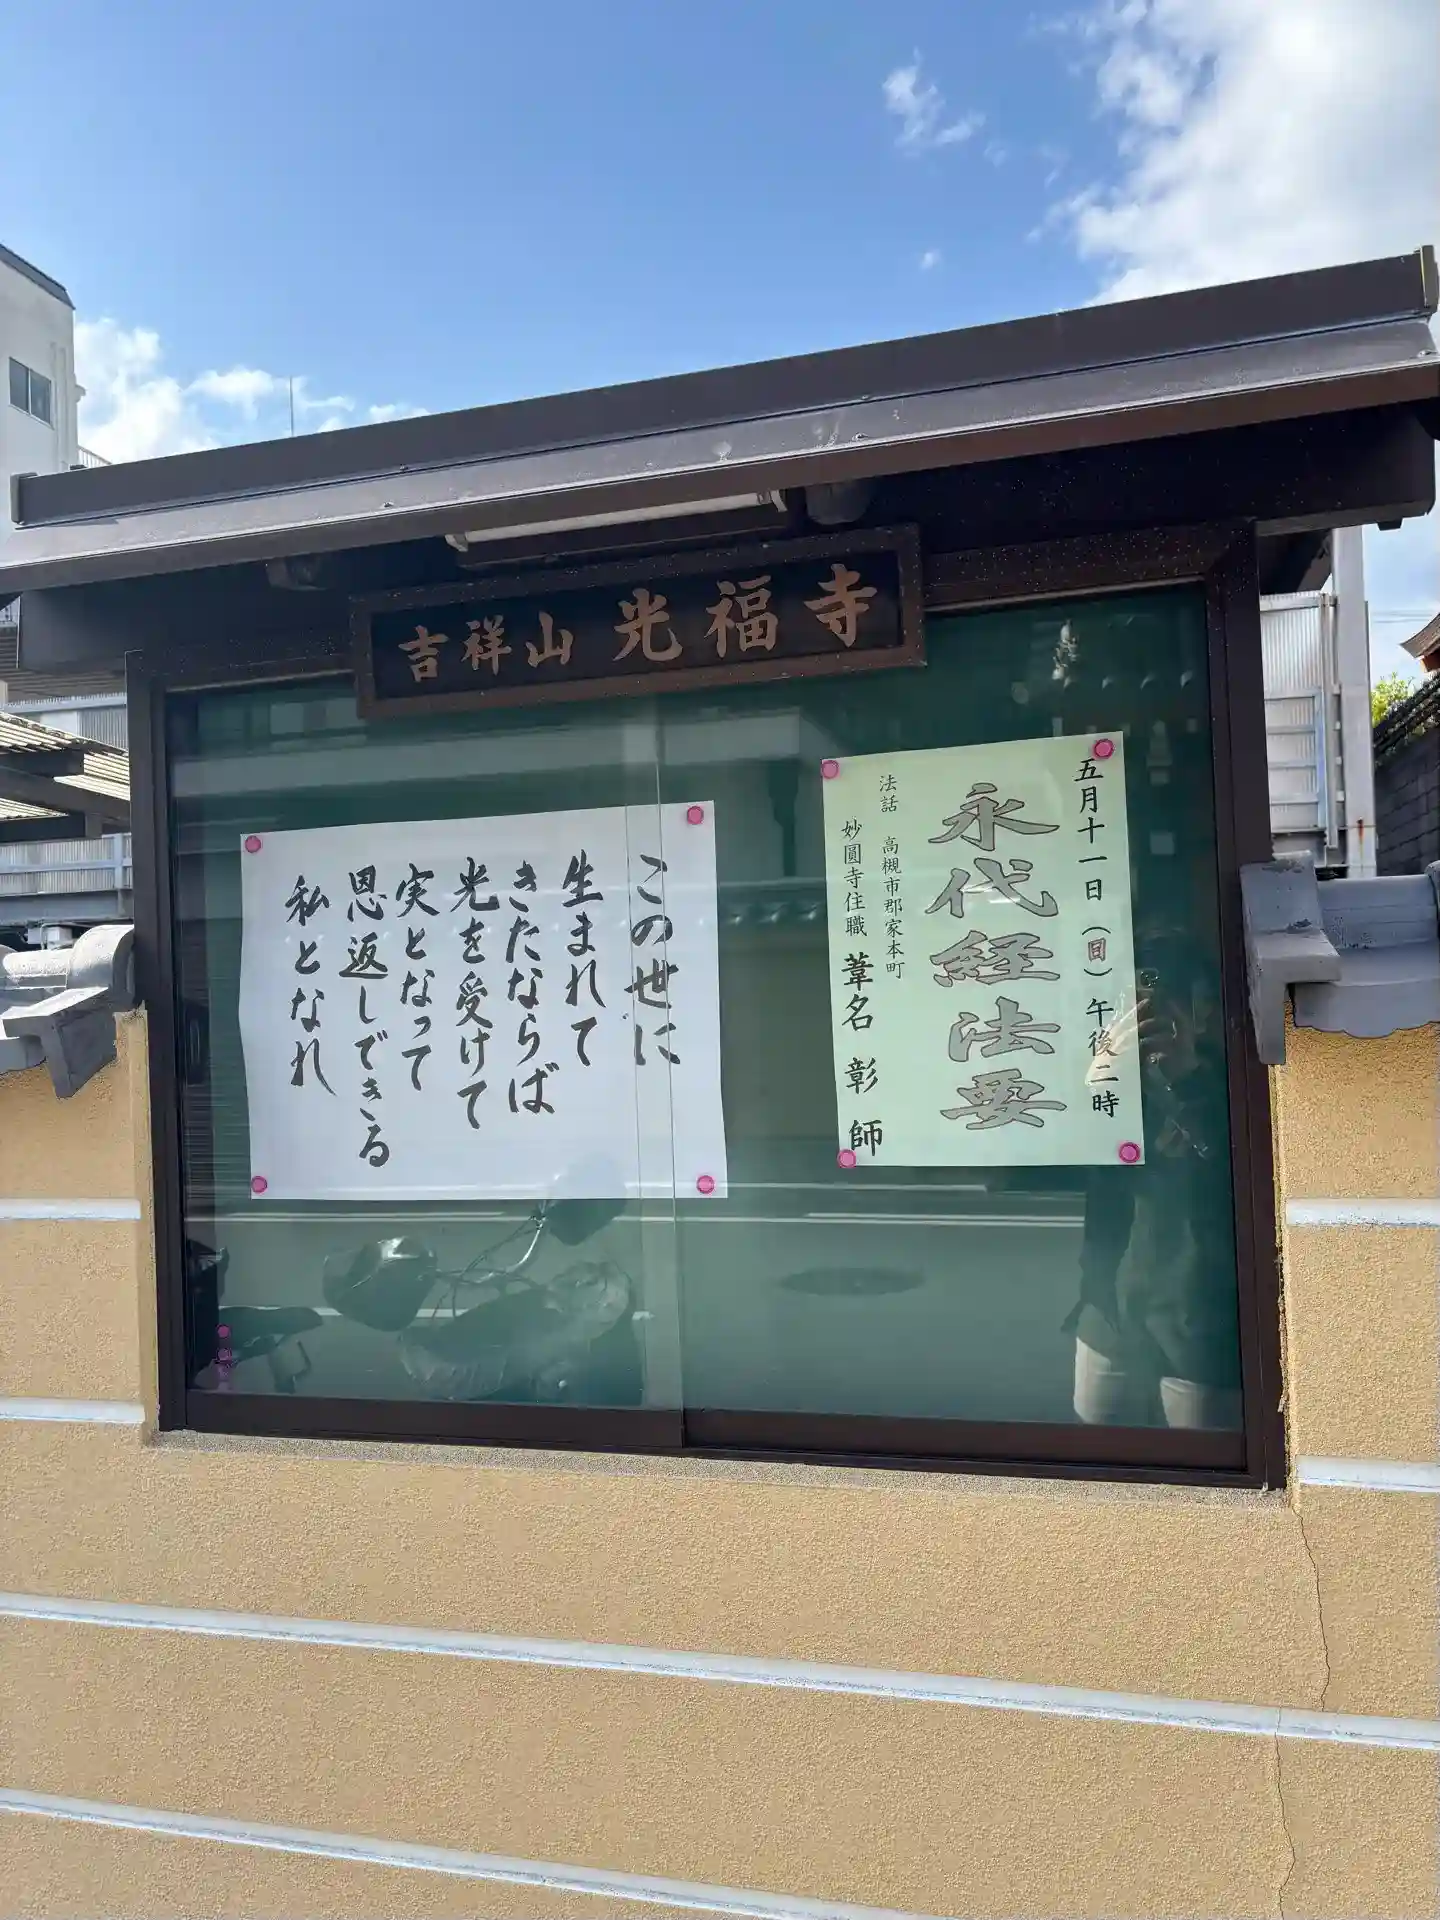 吉祥山 光福寺
五月十一日（日）午後二時
永代経法要
法話 高槻市郡家本町
妙圓寺住職 葦名 彰 師
この世に
生まれて
きたならば
光を受けて
実となって
恩返しできる
私となれ